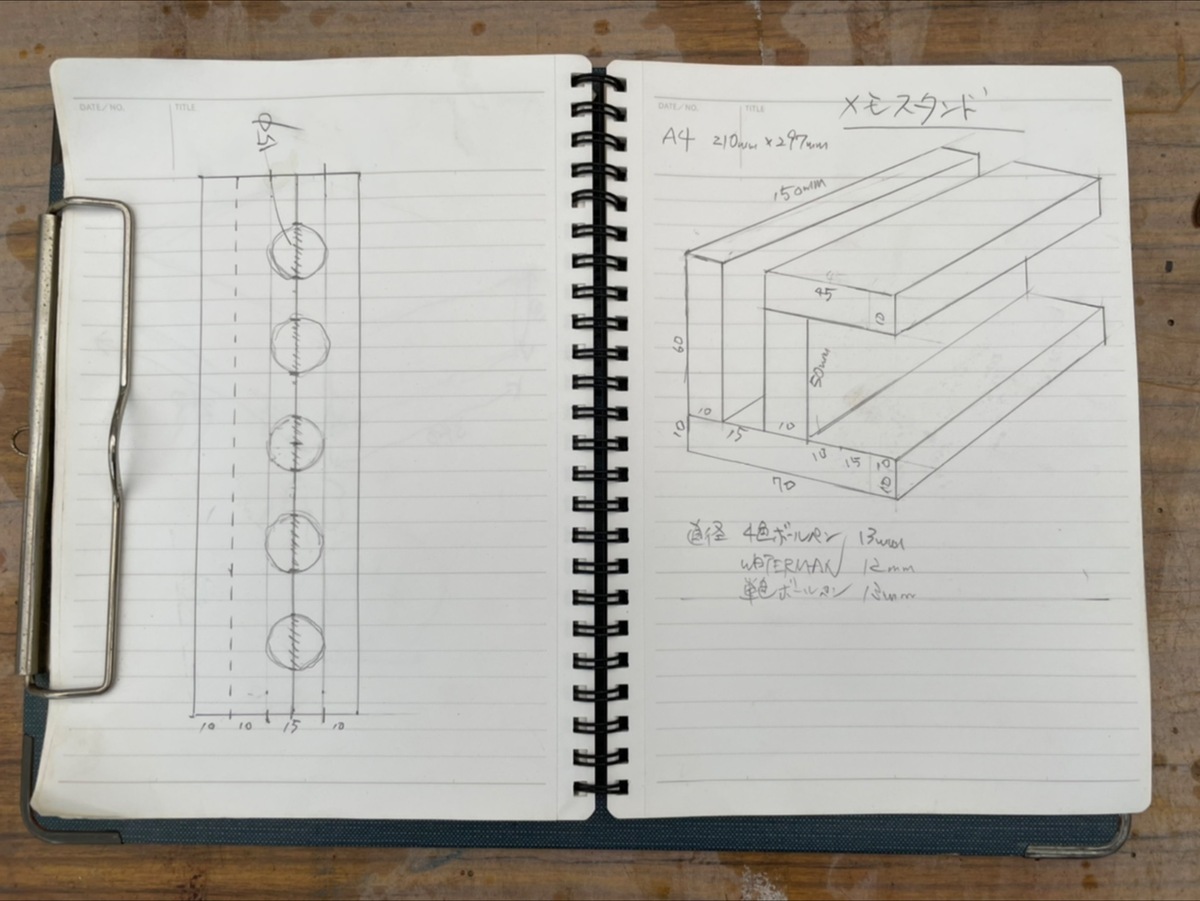 DATE/NO. TITLE
φ15
10 10 15 10
DATE/NO. TITLE
メモスタンド
A4 210mm×297mm
150mm
45
10
60
50mm
10 10
10 15 10 15 10
10
70
直径 4色ボールペン 13mm
WATERMAN 12mm
単色ボールペン